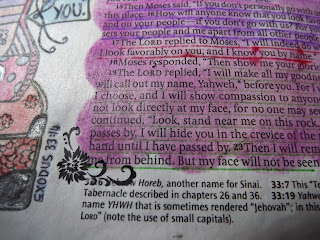 YOU.
EXODUS 33:16
Then Moses said, "If you don't personally go with
this place. 16 How will anyone know that you look
on your people—if you don't go with us?
sets your people and me apart from all other people
17 The LORD replied to Moses, "I will indeed do
I look favorably on you, and I know you
18 Moses responded, "Then show me your glor
19 The LORD replied, "I will make all my goodne
will call out my name, Yahweh, before you. For I
I choose, and I will show compassion to anyone
not look directly at my face, for no one may see
continued, "Look, stand near me on this rock.
passes by, I will hide you in the crevice of the
hand until I have passed by. 23 Then I will rem
from behind. But my face will not be seen
Horeb, another name for Sinai. 33:7 This "T
Tabernacle described in chapters 26 and 36. 33:19 Yahwe
name YHWH that is sometimes rendered "Jehovah"; in this
LORD" (note the use of small capitals).